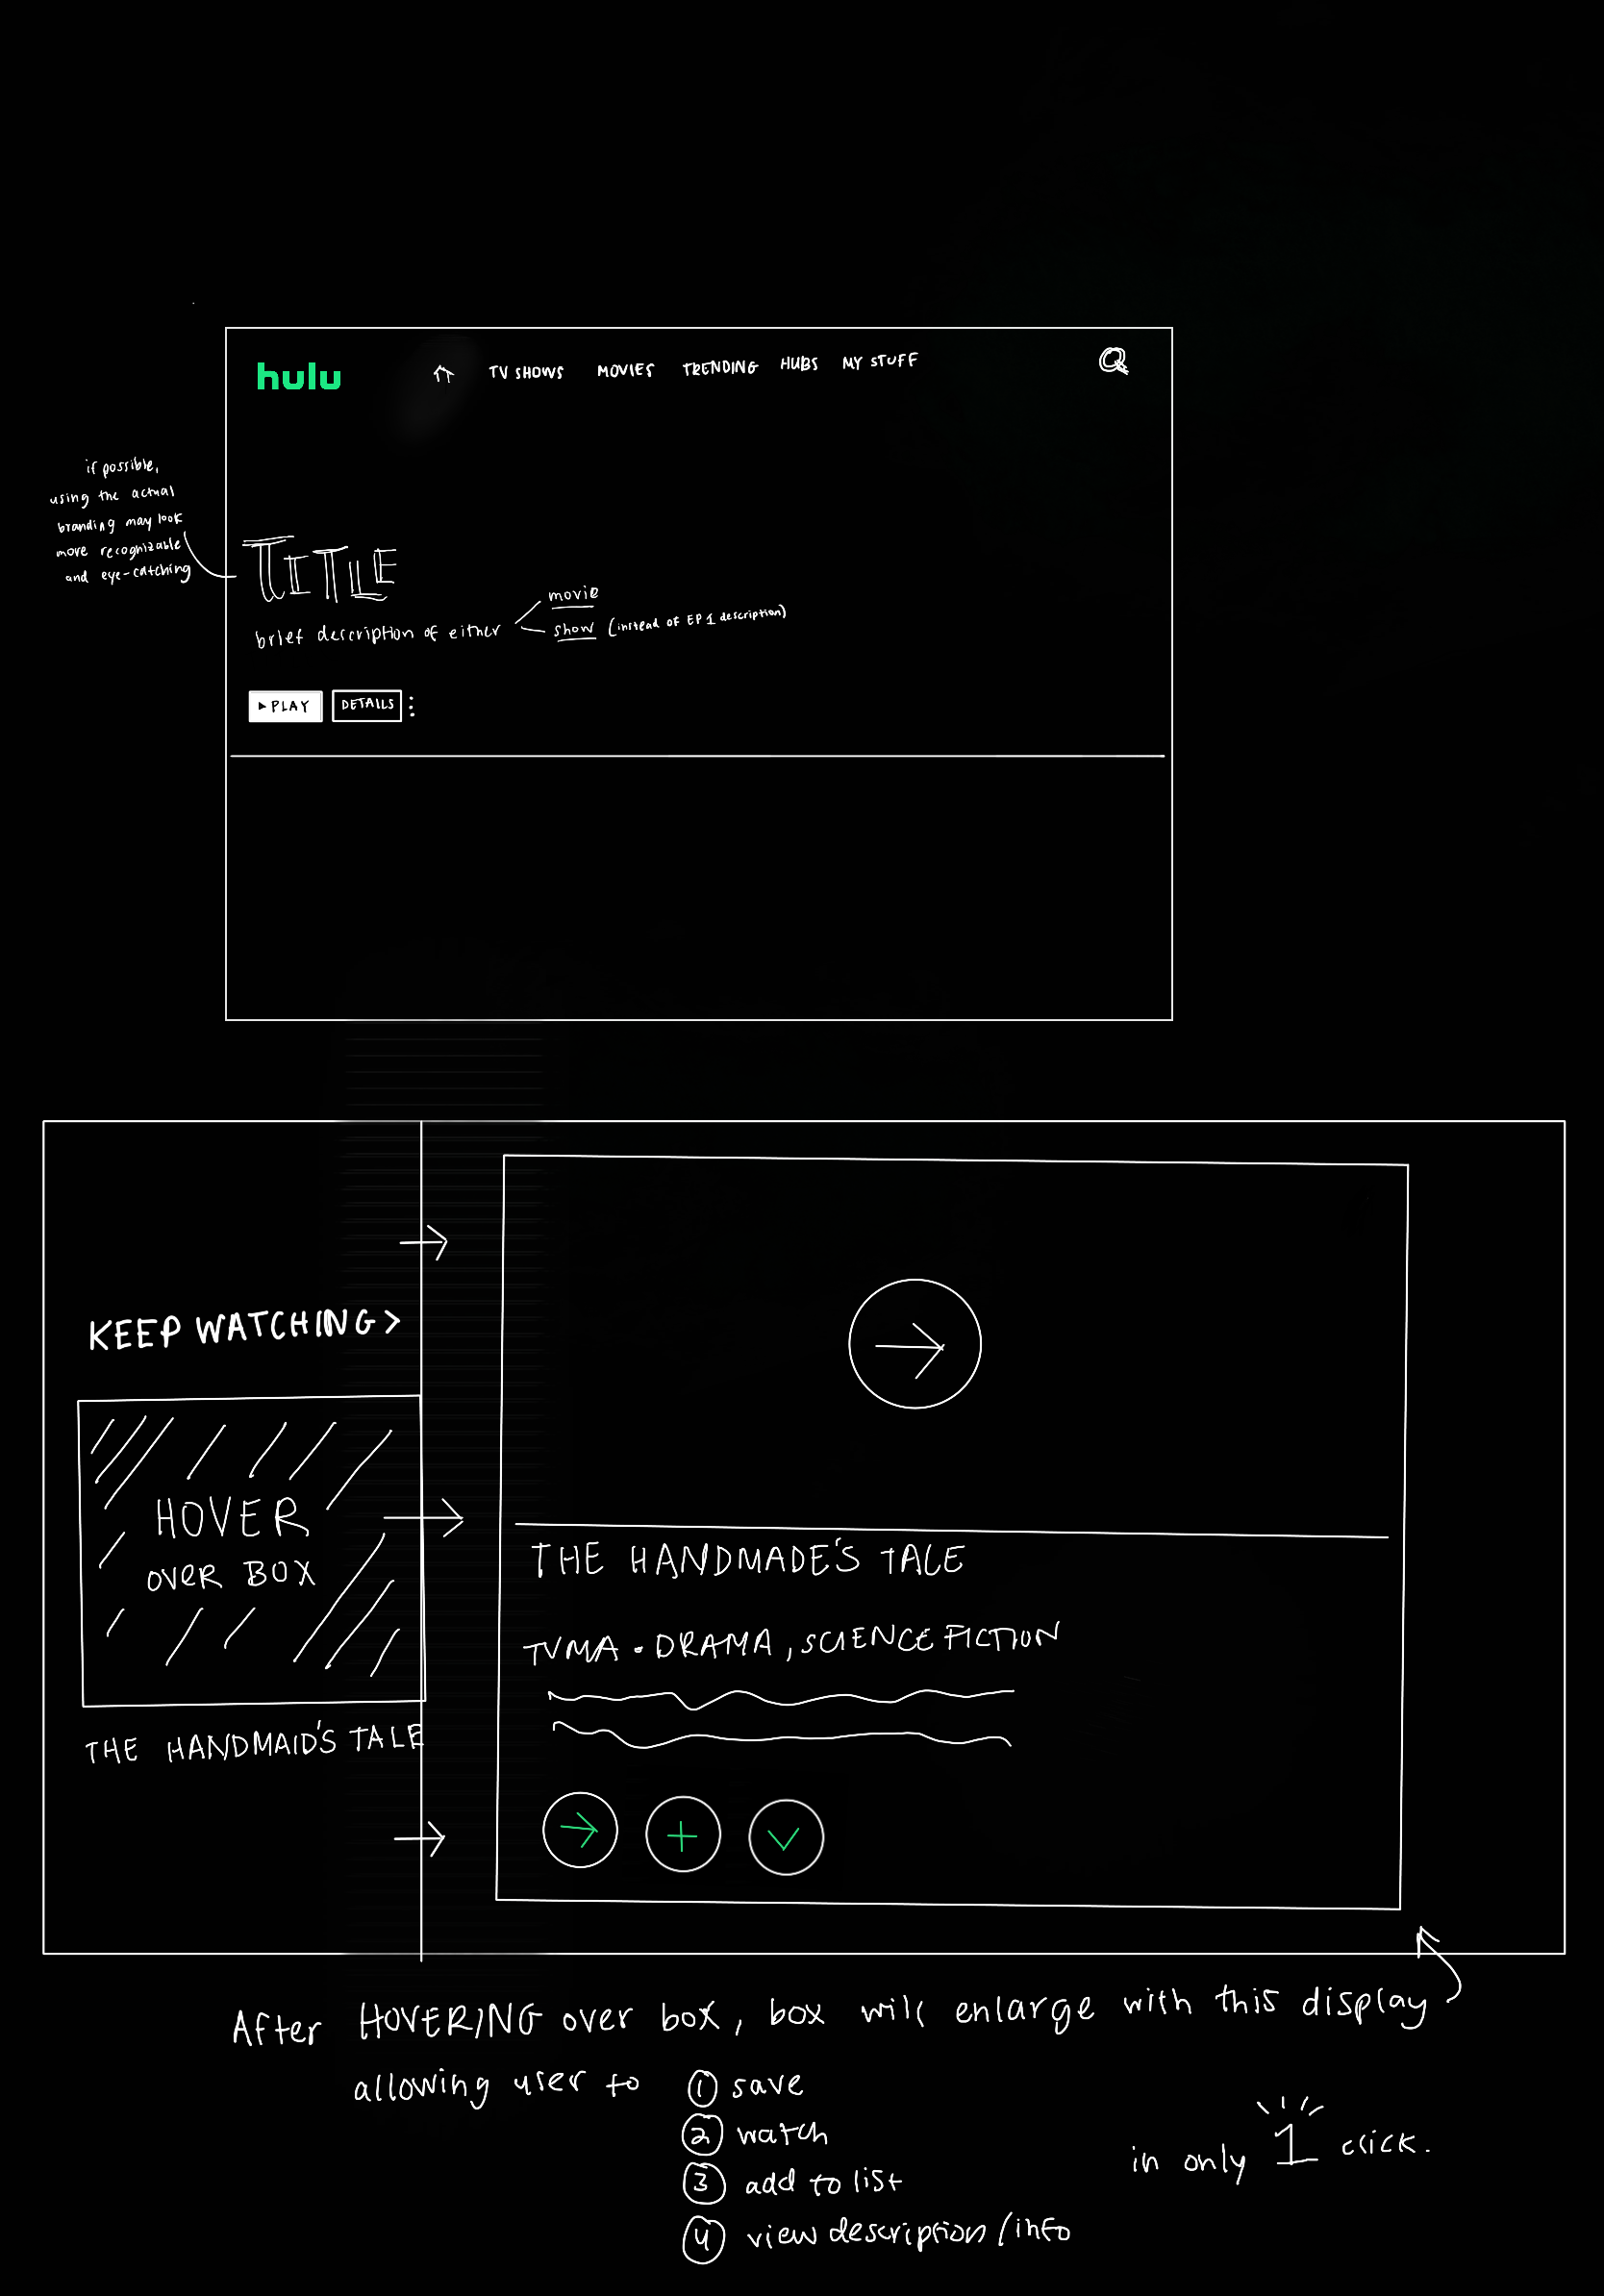 hulu
TV SHOWS MOVIES TRENDING HUBS MY STUFF
if possible,
using the actual
branding may look
more recognizable
and eye-catching
TITLE
brief description of either
movie
show (instead of EP 1 description)
▶ PLAY DETAILS
KEEP WATCHING >
HOVER
OVER BOX
THE HANDMAID'S TALE
THE HANDMADE'S TALE
TVMA • DRAMA, SCIENCE FICTION
After HOVERING over box, box will enlarge with this display
allowing user to
1 save
2 watch
3 add to list
4 view description/info
in only 1 click.